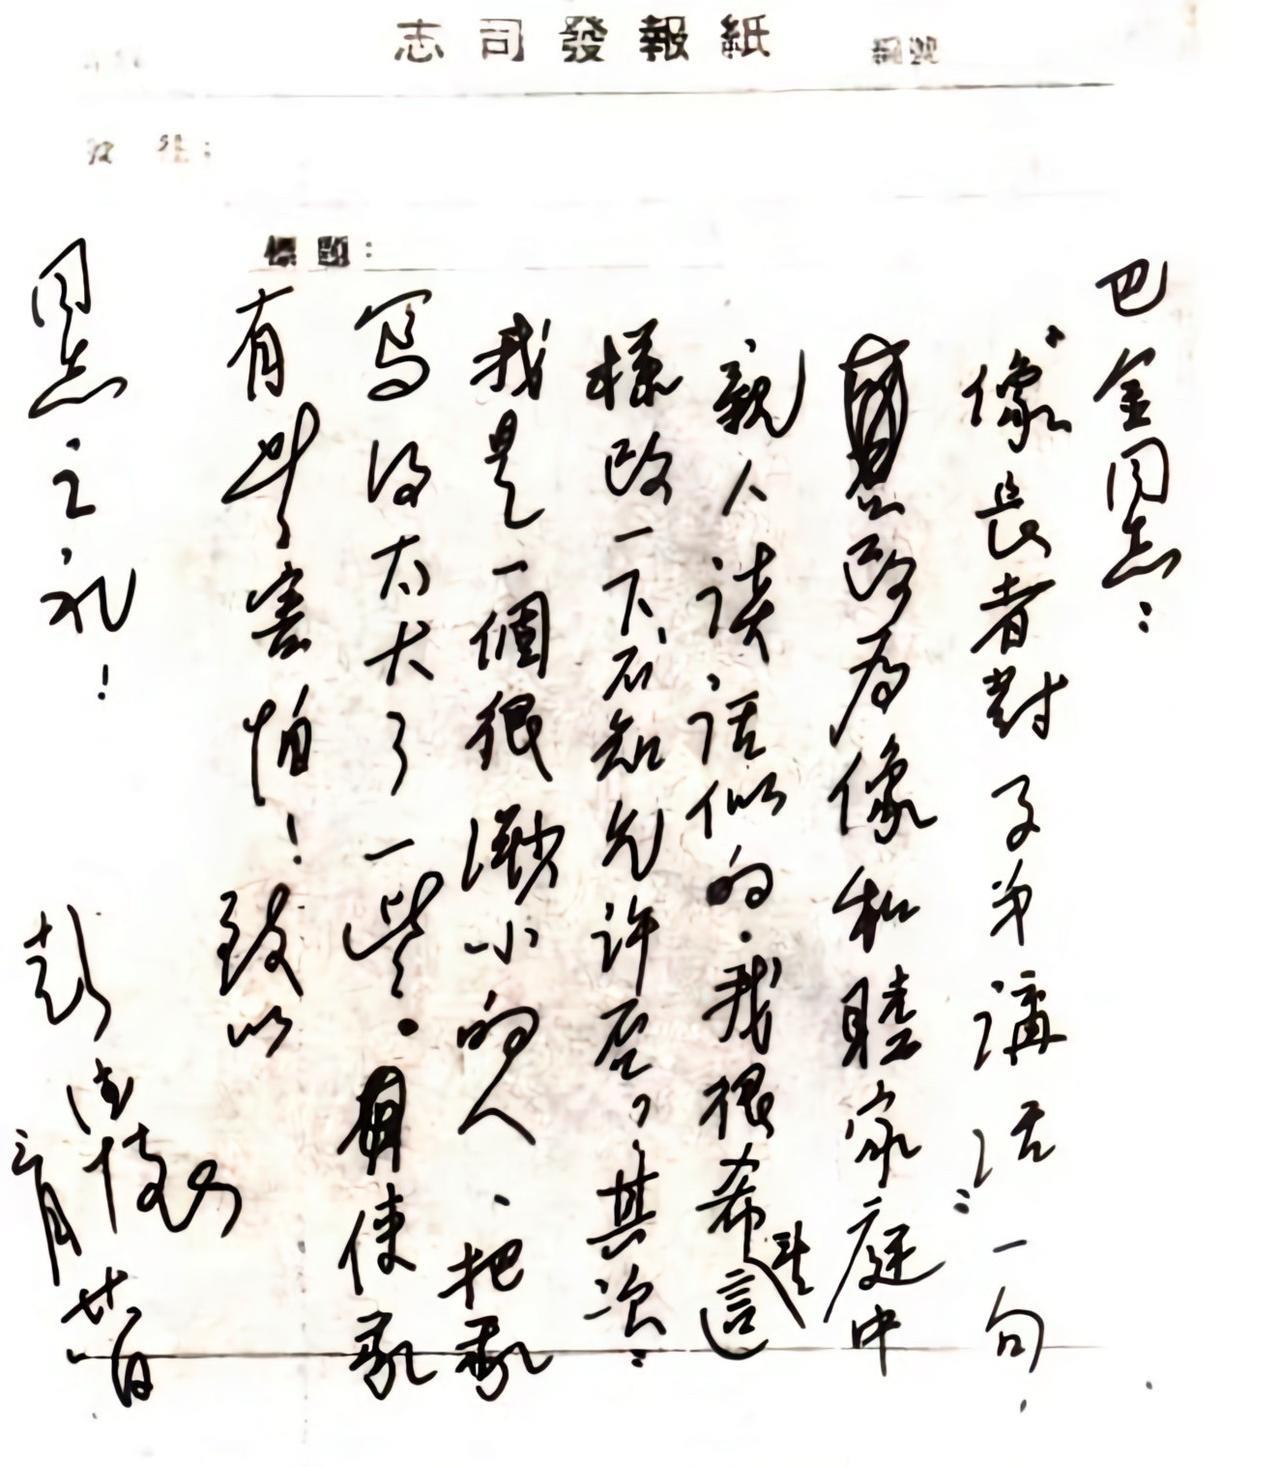 志司發報紙
編號
發往:
標題:
巴金同志:
“像長者對子弟講话”一句,
改为像和睦家庭中
親人谈话似的.我很希望這
樣改一下,不知允许否,其次:
我是一個很渺小的人、把我
写得太大了一些。使我
有些害怕!致以
同志之礼!
彭德懷
三月廿八日